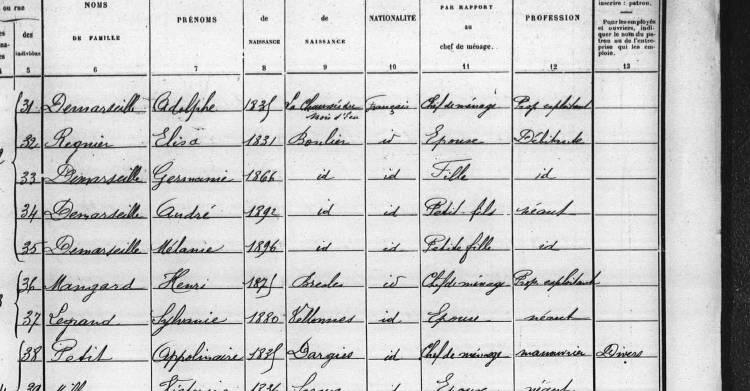 ou rue NOMS DE FAMILLE PRÉNOMS de NAISSANCE de NAISSANCE NATIONALITÉ PAR RAPPORT au chef de ménage. PROFESSION inscrire : patron.
Pour les employés et ouvriers, indiquer le nom du patron ou de l'entreprise qui les emploie.
des individus
5 6 7 8 9 10 11 12 13
31 Demarseille Adolphe 1835 La Chaussée du Bois d'Ecu Français Chef de ménage Prop. exploitant
32 Regnier Elisa 1831 Bonlier id Epouse Débitante
33 Demarseille Germanie 1866 id id Fille id
34 Demarseille André 1892 id id Petit-fils néant
35 Demarseille Mélanie 1896 id id Petite fille id
36 Mangard Henri 1875 Bresles id Chef de ménage Prop. exploitant
37 Legrand Sylvanie 1880 Velennes id Epouse néant
38 Petit Appolinaire 1835 Dargies id Chef de ménage manouvrier Divers
39 Victorine Epouse néant